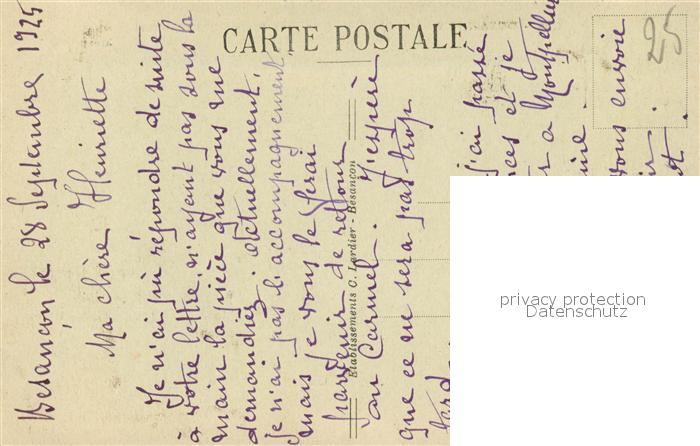 CARTE POSTALE
25
Besançon le 28 Septembre 1925
Ma chère Henriette
Je n'ai pu répondre de suite
à votre lettre n'ayant pas sous la
main la pièce que vous me
demandiez. actuellement,
je n'ai pas l'accompagnement
mais je vous le ferai
parvenir de retour
au Carmel. J'espère
que ce ne sera pas trop
tard.
j'ai passé
ces et je
r à Montpellier
ine.
vous envoie
ir.
t.
Etablissements C. Lardier - Besançon
privacy protection
Datenschutz